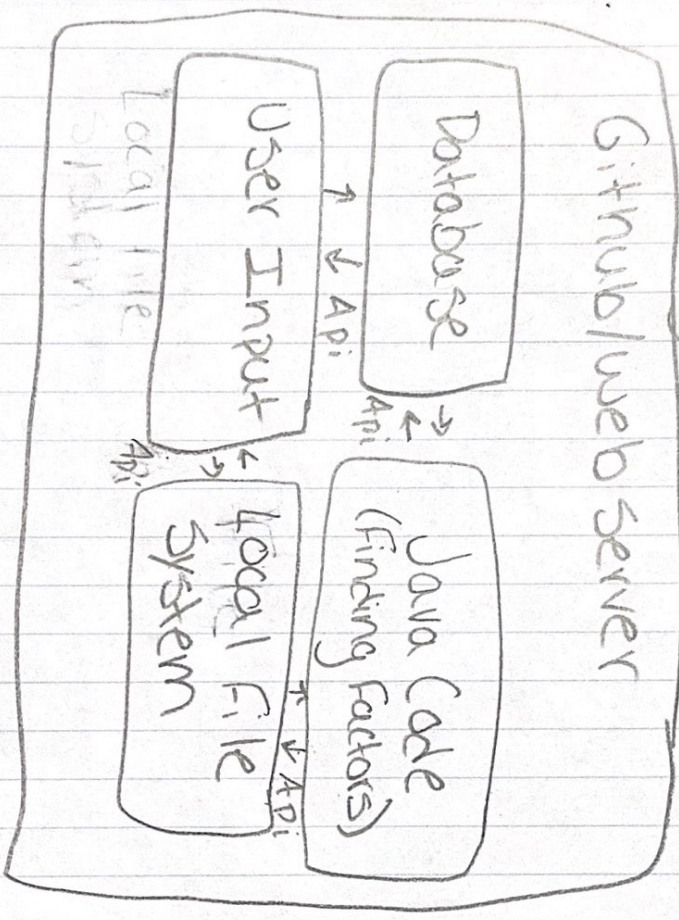 Github/web server
Database
Api
Java Code
(Finding Factors)
Api
Api
User Input
Api
Local File
System
Local File
System